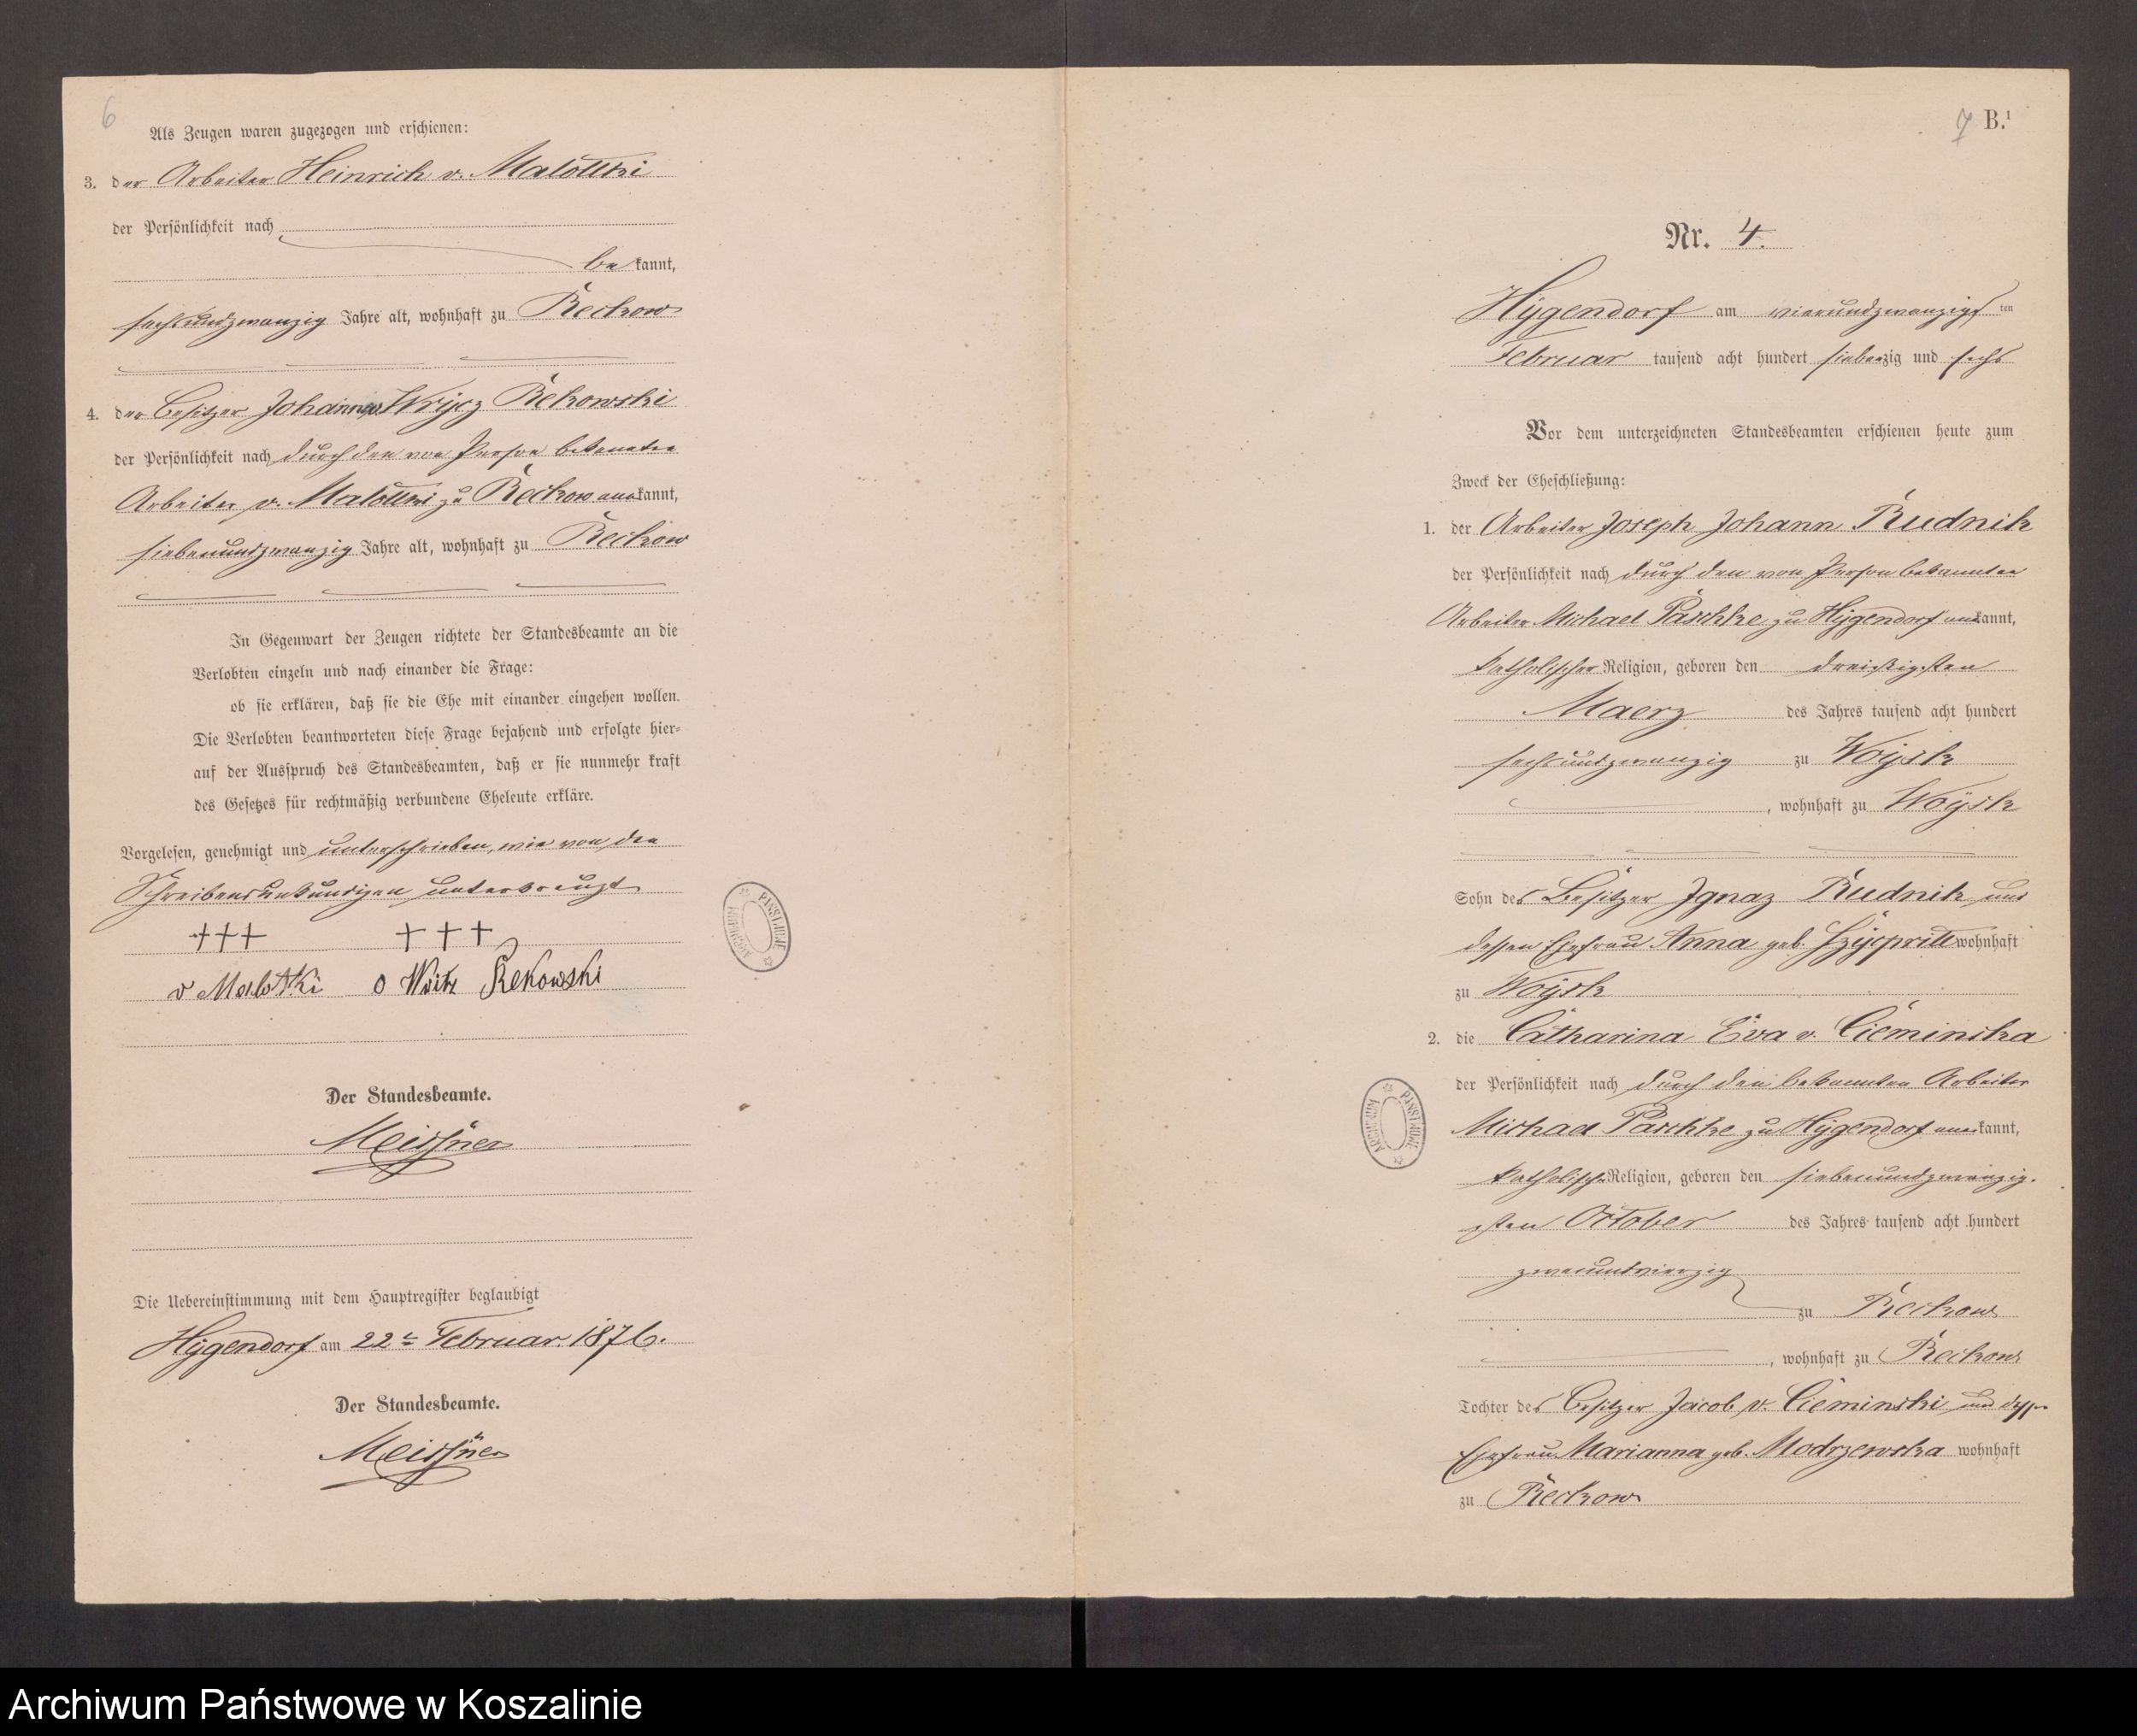 6
Als Zeugen waren zugezogen und erschienen:
3. der Arbeiter Heinrich v. Malottki
der Persönlichkeit nach
be kannt,
sechsundzwanzig Jahre alt, wohnhaft zu Reckow
4. der Besitzer Johann v. Wrycz Rekowski
der Persönlichkeit nach durch den von Person bekannten
Arbeiter v. Malottki zu Reckow anerkannt,
siebenundzwanzig Jahre alt, wohnhaft zu Reckow
In Gegenwart der Zeugen richtete der Standesbeamte an die
Verlobten einzeln und nach einander die Frage:
ob sie erklären, daß sie die Ehe mit einander eingehen wollen.
Die Verlobten beantworteten diese Frage bejahend und erfolgte hier=
auf der Ausspruch des Standesbeamten, daß er sie nunmehr kraft
des Gesetzes für rechtmäßig verbundene Eheleute erkläre.
Vorgelesen, genehmigt und unterschrieben, wie von den
Schreibensunkundigen unterkreuzt
+++ +++
v Malotki v Rekowski
Der Standesbeamte.
Meissner
Die Uebereinstimmung mit dem Hauptregister beglaubigt
Hygendorf am 22ten Februar 1876.
Der Standesbeamte.
Meissner
ARCHIWUM PAŃSTWOWE
7 B.1
Nr. 4.
Hygendorf am vierundzwanzigsten
Februar tausend acht hundert siebenzig und sechs
Vor dem unterzeichneten Standesbeamten erschienen heute zum
Zweck der Eheschließung:
1. der Arbeiter Joseph Johann Rudnik
der Persönlichkeit nach durch den von Person bekannten
Arbeiter Michael Paschke zu Hygendorf anerkannt,
katholischer Religion, geboren den dreißigsten
Maerz des Jahres tausend acht hundert
sechsundzwanzig zu Woysk
, wohnhaft zu Woysk
Sohn des Besitzer Ignaz Rudnik und
dessen Ehefrau Anna geb. wohnhaft
zu Woysk
2. die Catharina Eva v. Cieminska
der Persönlichkeit nach durch den bekannten Arbeiter
Michael Paschke zu Hygendorf anerkannt,
katholischer Religion, geboren den siebenundzwanzig-
sten October des Jahres tausend acht hundert
zweiundvierzig
zu Reckow
, wohnhaft zu Reckow
Tochter des Besitzer Jacob v. Cieminski und dessen
Ehefrau Marianna geb. Modrzewska wohnhaft
zu Reckow
ARCHIWUM PAŃSTWOWE
Archiwum Państwowe w Koszalinie